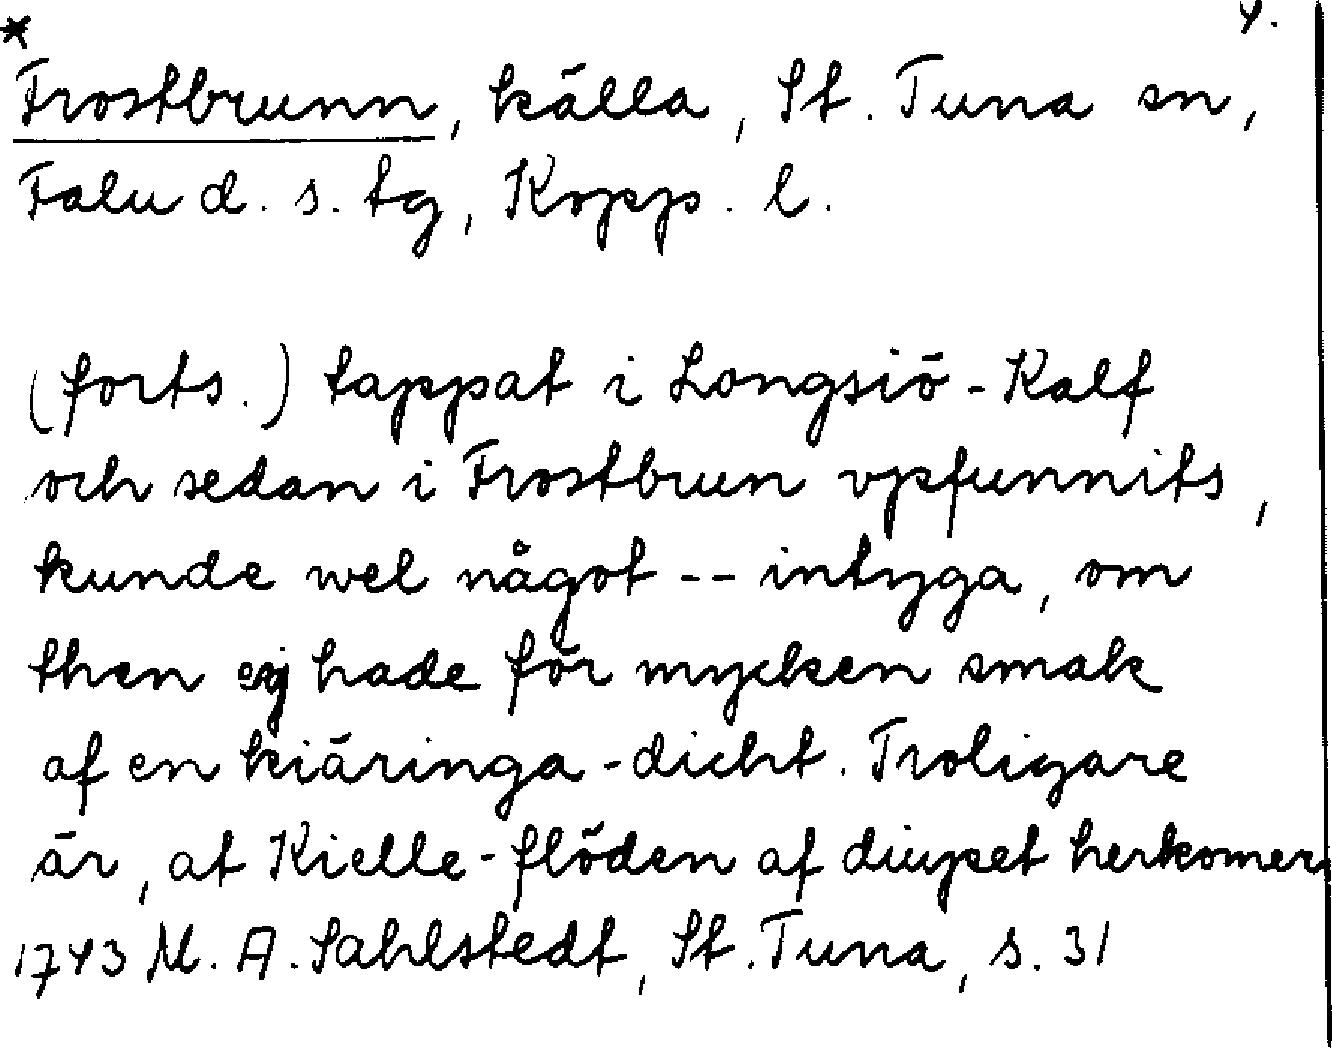 * 4.
Frostbrunn, källa, St. Tuna sn,
Falu d. s. tg, Kopp. l.
(forts.) tappat i Longsiö-Kalf
och sedan i Frostbrun vpfunnits,
kunde wel något -- intyga, om
then ej hade för mycken smak
af en kiäringa-dicht. Troligare
är, at Kielle-flöden af diupet herkomer.
1743 M. A. Sahlstedt, St. Tuna, s. 31